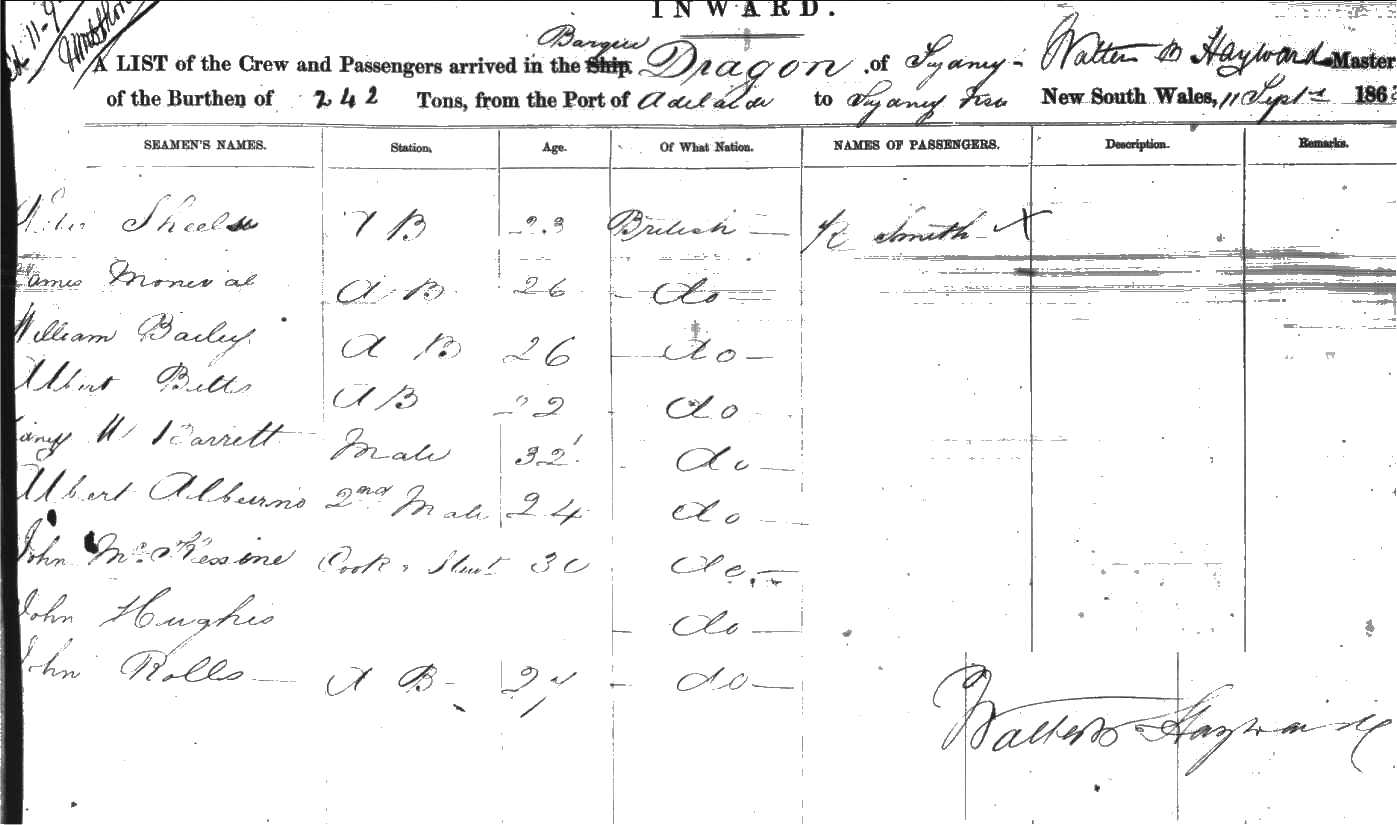 INWARD.
Barque
A LIST of the Crew and Passengers arrived in the Ship Dragon of Sydney - Walter B Hayward Master
of the Burthen of 242 Tons, from the Port of Adelaide to Sydney New South Wales, 11 Septr 186
SEAMEN'S NAMES. Station, Age. Of What Nation. NAMES OF PASSENGERS. Description. Remarks.
A B 23 British — R Smith X
James A B 26 - do —
William Bailey A B 26 — do —
Albert Betts A B 22 do
W Barrett Mate 32 do —
Albert Alburno 2nd Mate 24 do —
John Cook & Stewt 30 do —
John Hughes — do —
John Rolls — A B - 27 - do —
Walter B Hayward